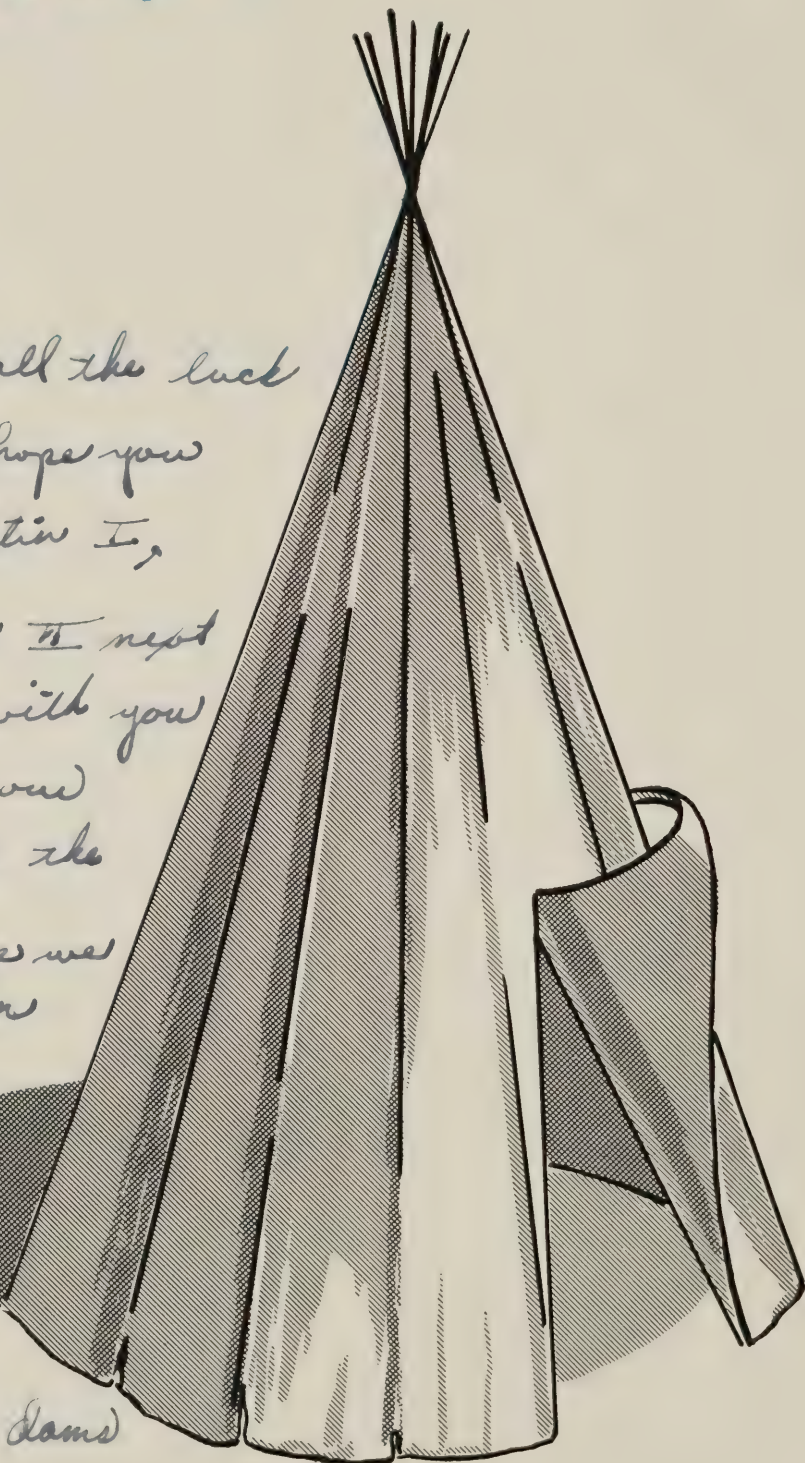 all the luck
hope you
tin I,
II next
with you
the
we
dams